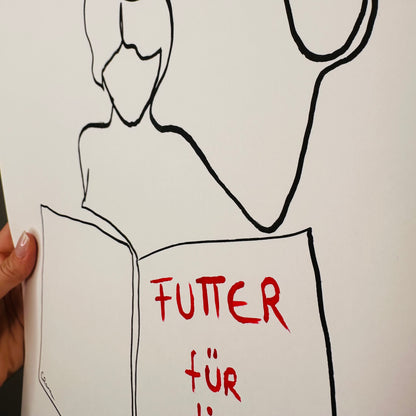 FUTTER
fÜR